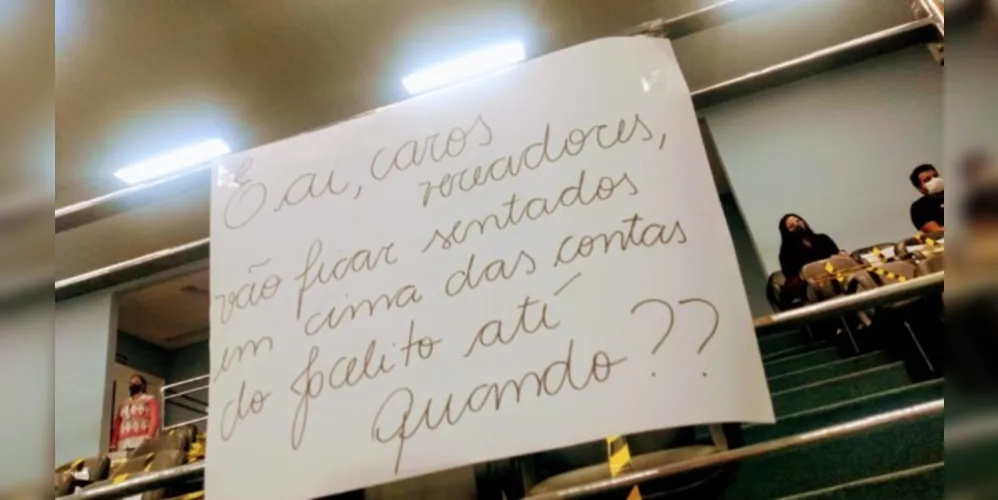 E ai, caros
vereadores,
vão ficar sentados
em cima das contas
do Jocelito até
Quando??